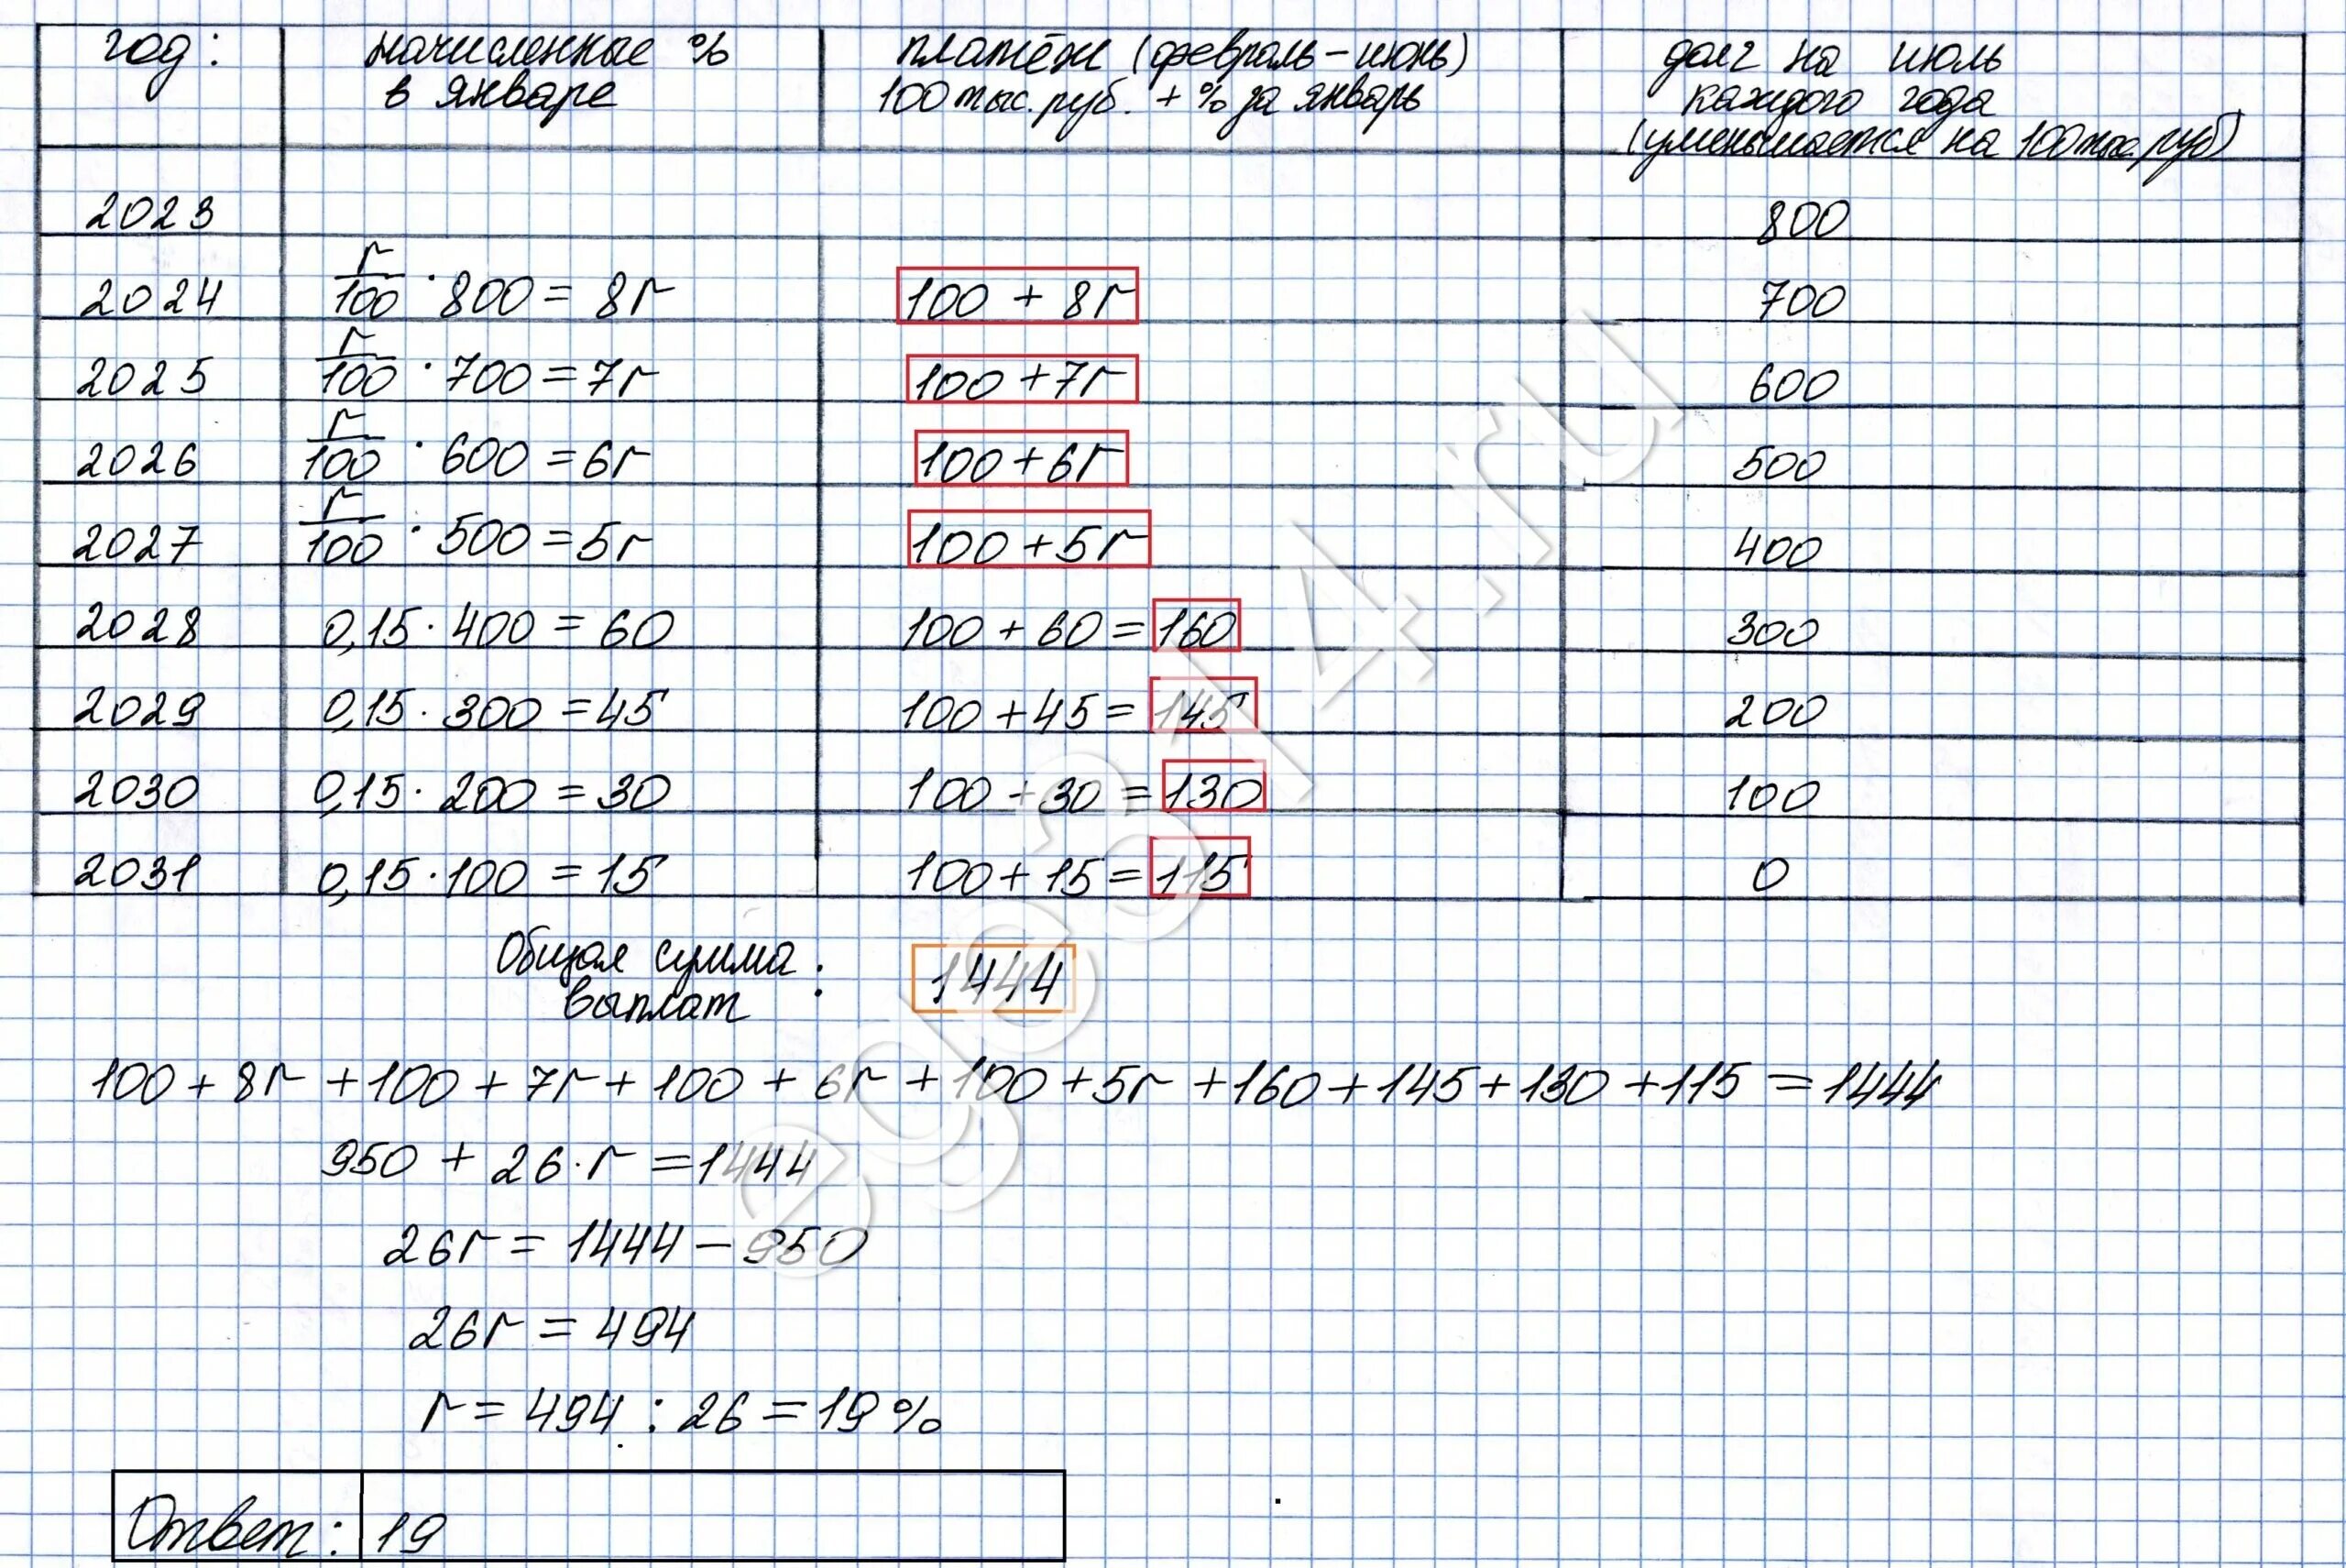 год: начисленные % платёж (февраль – июнь) долг на июль
в январе 100 тыс. руб. + % за январь каждого года
(уменьшается на 100 тыс. руб)
2023 800
2024 r/100 · 800 = 8r 100 + 8r 700
2025 r/100 · 700 = 7r 100 + 7r 600
2026 r/100 · 600 = 6r 100 + 6r 500
2027 r/100 · 500 = 5r 100 + 5r 400
2028 0,15 · 400 = 60 100 + 60 = 160 300
2029 0,15 · 300 = 45 100 + 45 = 145 200
2030 0,15 · 200 = 30 100 + 30 = 130 100
2031 0,15 · 100 = 15 100 + 15 = 115 0
Общая сумма : 1444
выплат
100 + 8r + 100 + 7r + 100 + 6r + 100 + 5r + 160 + 145 + 130 + 115 = 1444
950 + 26 · r = 1444
26r = 1444 – 950
26r = 494
r = 494 : 26 = 19 %
Ответ: 19
ege314.ru